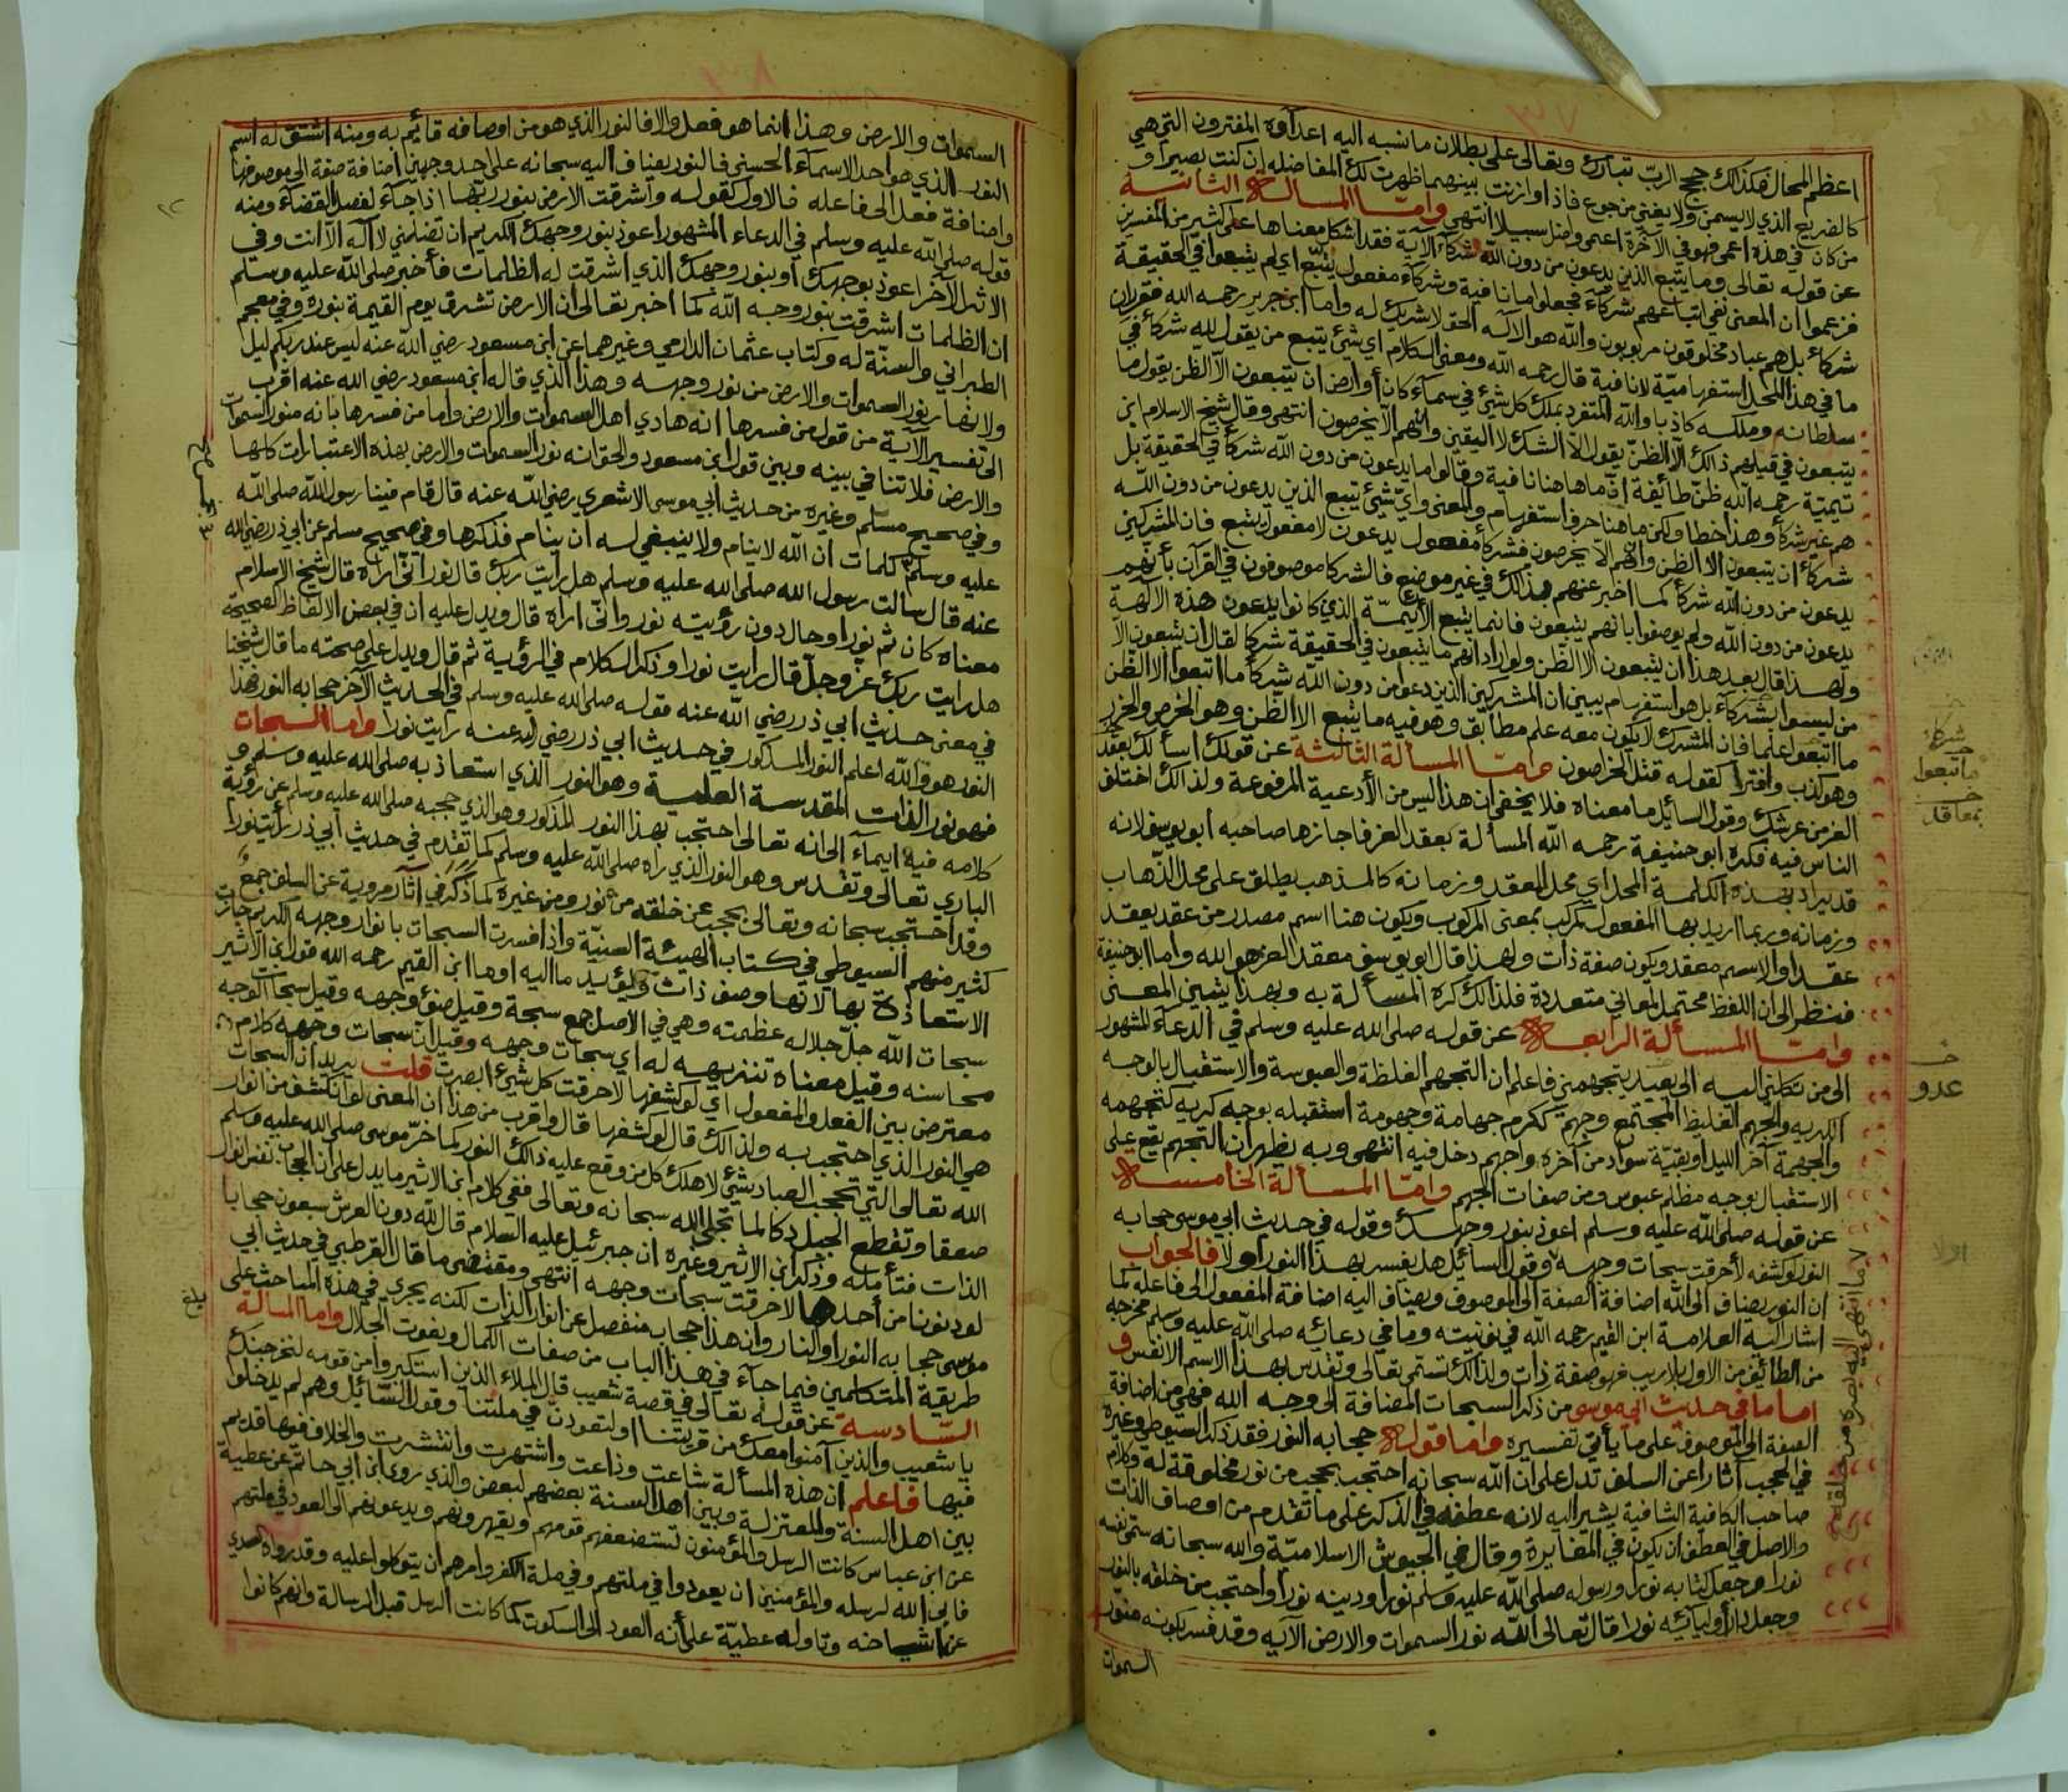 اعظم المحال فكذلك حجج الربّ تبارك وتعالى على بطلان ما نسبه اليه اعدآوه المفترون التي هي
كالضريع الذي لا يسمن ولا يغني من جوع فاذا وازنت بينهما ظهرت لك المفاضله ان كنت بصيرا و
من كان في هذه اعمى فهو في الآخرة اعمى واضل سبيلا انتهى وامّا المسالة الثانية
عن قوله تعالى وما يتبع الذين يدعون من دون الله شركآء الآية فقد اشكل معناها على كثير من المفسرين
فزعموا ان المعنى نفي اتباعهم شركآء فجعلوا ما نافية وشركاء مفعول يتبع اي لم يتبعوا في الحقيقة
شركاء بل هم عباد مخلوقون مربوبون والله هو الاله الحق لا شريك له واما ابن جرير رحمه الله فقرر ان
ما في هذا المحل استفهامية لا نافية قال رحمه الله ومعنى الكلام اي شئ يتبع من يقول لله شركآء في
سلطانه وملكه كاذبا والله المتفرد بملك كل شئ في سمآء كان أو أرض ان يتبعون الا الظن يقول ما
يتبعون في قيلهم ذالك الا الظنّ يقول الا الشك لا اليقين وان هم الا يخرصون انتهى وقال شيخ الاسلام ابن
تيميّة رحمه الله ظنّ طائفة انّ ما هاهنا نافية وقالوا ما يدعون من دون الله شركآء في الحقيقة بل
هم غير شركآء وهذا خطا ولكن ما هنا حرف استفهام والمعنى وايّ شئ يتبع الذين يدعون من دون الله
شركآء ان يتبعون الا الظن وان هم الا يخرصون فشركآء مفعول يدعون لا مفعول يتبع فان المشركين
يدعون من دون الله شركآء كما اخبر عنهم بذالك في غير موضع فالشركا موصوفون في القرآن بأنهم
يدعون من دون الله ولم يوصفوا بانهم يتبعون فانما يتبع الأيمّة الذي كانوا يدعون هذه الالهة
ولهذا قال بعد هذا ان يتبعون الا الظن ولو اراد انهم ما يتبعون في الحقيقة شركا لقال ان يتبعون الا
من ليسوا بشركآء بل هو استفهام يبين ان المشركين الذين دعوا من دون الله شركآء ما اتبعوا الا الظن
ما اتبعوا علما فان المشرك لا يكون معه علم مطابق وهو فيه ما يتبع الا الظن وهو الخرص والحزر
وهو كذب وافترآ كقوله قتل الخراصون وامّا المسألة الثالثة عن قولك اسألك بمعقد
العز من عرشك وقول السائل ما معناه فلا يخفى ان هذا ليس من الأدعية المرفوعة ولذالك اختلف
الناس فيه فكره ابو حنيفة رحمه الله المسألة بمعقد العز فاجازها صاحبه أبو يوسف لانه
قد يراد بهذه الكلمة المحل اي محل العقد وزمانه كالمذهب يطلق على محل الذهاب
وزمانه وربما اريد بها المفعول كمركب بمعنى المركوب ويكون هنا اسم مصدر من عقد يعقد
عقدا والاسم معقد ويكون صفة ذات ولهذا قال ابو يوسف معقد العز هو الله واما ابو حنيفة
فنظر الى ان اللفظ محتمل لمعاني متعددة فلذالك كره المسألة به وبهذا يتبين المعنى
وامّا المسألة الرابعة عن قوله صلى الله عليه وسلم في الدعآء المشهور
الى من تكلني اليه الى بعيد يتجهمني فاعلم ان التجهم الغلظة والعبوسة والاستقبال بالوجه
الكريه والجهم الغليظ المجتمع وجهم ككرم جهامة وجهومة استقبله بوجه كريه كتجهمه
والجهمة آخر الليل او بقيّة سواد من آخره واجهم دخل فيه انتهى وبه يظهر ان التجهم يقع على
الاستقبال بوجه مظلم عبوس ومن صفات الجهم وامّا المسألة الخامسة
عن قوله صلى الله عليه وسلم اعوذ بنور وجهك وقوله في حديث ابي موسى حجابه
النور لو كشفه لأحرقت سبحات وجهه وقول السآئل هل يفسر بهذا النور او لا فالجواب
ان النور يضاف الى الله اضافة الصفة الى الموصوف ويضاف اليه اضافة المفعول الى فاعله كما
اشار اليه العلامة ابن القيم رحمه الله في نونيته وما في دعائه صلى الله عليه وسلم مخرجه
من الطائف من الاول بلا ريب فهو صفة ذات ولذالك تسمّى تعالى وتقدس بهذا الاسم الانفس و
اما ما في حديث ابي موسى من ذكر السبحات المضافة الى وجه الله فهي من اضافة
الصفة الى الموصوف على ما يأتي تفسيره واما قوله حجابه النور فقد ذكر السيوطي وغيره
في الحجب آثارا عن السلف تدل على ان الله سبحانه احتجب بحجب من نور مخلوقة له وكلام
صاحب الكافية الشافية يشير اليه لانه عطفه في الذكر على ما تقدم من اوصاف الذات
والاصل في العطف ان يكون في المغايرة وقال في الجيوش الاسلاميّة والله سبحانه سمى نفسه
نورا وجعل كتابه نورا ورسوله صلى الله عليه وسلم نورا ودينه نورا واحتجب من خلقه بالنور
وجعل دار أوليآئه نورا قال تعالى الله نور السموات والارض الآيه وقد فسر بكونه منوّر
السموات
شركاء
ما اتبعوا
خ
بمعاقد
خ
عدو
ما انتهى اليه بصره من خلقه
السموات والارض وهذا انما هو فعل والا فالنور الذي هو من اوصافه قائم به ومنه اشتق له اسم
النور الذي هو احد الاسمآء الحسنى فالنور يضاف اليه سبحانه على احد وجهين اضافة صفة الى موصوفها
واضافة فعل الى فاعله فالاول كقوله وأشرقت الارض بنور ربها اذا جآء لفصل القضآء ومنه
قوله صلى الله عليه وسلم في الدعاء المشهور اعوذ بنور وجهك الكريم ان تضلني لا آله الا انت وفي
الاثر الآخر اعوذ بوجهك أو بنور وجهك الذي اشرقت له الظلمات فأخبر صلى الله عليه وسلم
ان الظلمات اشرقت بنور وجه الله كما اخبر تعالى ان الارض تشرق يوم القيمة بنوره وفي معجم
الطبراني والسنّة له وكتاب عثمان الدارمي وغيرهما عن ابن مسعود رضي الله عنه ليس عند ربكم ليل
ولا نهار نور السموات والارض من نور وجهه وهذا الذي قاله ابن مسعود رضي الله عنه اقرب
الى تفسير الآية من قول من فسرها انه هادي اهل السموات والارض واما من فسرها بانه منور السموات
والارض فلا تنافي بينه وبين قول ابن مسعود والحق انه نور السموات والارض بهذه الاعتبارات كلها
وفي صحيح مسلم وغيره من حديث أبي موسى الاشعري رضي الله عنه قال قام فينا رسول الله صلى الله
عليه وسلم كلمات ان الله لا ينام ولا ينبغي له ان ينام فذكرها وفي صحيح مسلم عن ابي ذر رضي الله
عنه قال سالت رسول الله صلى الله عليه وسلم هل رايت ربك قال نور انى اراه قال شيخ الاسلام
معناه كان ثم نور او حال دون رؤيته نور وانى اراه قال ويدل عليه ان في بعض الالفاظ الصحيحة
هل رايت ربك عز وجلّ قال رايت نورا وذكر الكلام في الرؤية ثم قال ويدل على صحته ما قال شيخنا
في معنى حديث أبي ذر رضي الله عنه قوله صلى الله عليه وسلم في الحديث الآخر حجابه النور فهذا
النور هو والله اعلم النور المذكور في حديث ابي ذر رضي الله عنه رايت نورا واما السبحات
فهو نور الذات المقدسة العلية وهو النور الذي استعاذ به صلى الله عليه وسلم و
كلامه فيه ايمآء إلى انه تعالى احتجب بهذا النور المذكور وهو الذي حجبه صلى الله عليه وسلم عن رؤية
الباري تعالى وتقدس وهو النور الذي راه صلى الله عليه وسلم كما تقدم في حديث أبي ذر رأيت نورا
وقد احتجب سبحانه وتعالى بحجب عن خلقه من نور ومن غيره كما ذكر في آثار مروية عن السلف جمع
كثير منهم السيوطي في كتاب الهيئة السنيّة واذا فسرت السبحات بانوار وجهه الكريم جازت
الاستعاذة بها لانها وصف ذات ويؤيد ما اليه اوما ابن القيم رحمه الله قول ابن الاثير
سبحات الله جلّ جلاله عظمته وهي في الاصل جمع سبحة وقيل ضوء وجهه وقيل سبحات الوجه
محاسنه وقيل معناه تنزيهه له اي سبحات وجهه وقيل ان سبحات وجهه كلام
معترض بين الفعل والمفعول اي لو كشفها لاحرقت كل شئ ابصرت قلت يريد ان السبحات
هي النور الذي احتجب به ولذالك قال لو كشفها قال واقرب من هذا ان المعنى لو انكشف من انوار
الله تعالى التي تحجب العباد شئ لاهلك كل من وقع عليه ذالك النور كما خرّ موسى صلى الله عليه وسلم
صعقا وتقطع الجبل دكا لما تجلى الله سبحانه وتعالى ففي كلام ابن الاثير ما يدل على ان الحجاب نفس انوار
الذات فتأمله وذكر ابن الاثير وغيره ان جبرئيل عليه السلام قال لله دون العرش سبعون حجابا
لو دنونا من أحدها لاحرقت سبحات وجهه انتهى ومقتضى ما قال القرطبي في حديث أبي
موسى حجابه النور او النار وان هذا حجاب منفصل عن انوار الذات لكنه يجري في هذه المباحث على
طريقة المتكلمين فيما جآء في هذا الباب من صفات الكمال ونعوت الجلال واما المسالة
السّادسة عن قوله تعالى في قصة شعيب قال الملاء الذين استكبروا من قومه لنخرجنك
يا شعيب والذين آمنوا معك من قريتنا او لتعودن في ملتنا وقول السائل وهم لم يدخلوا
فيها فاعلم ان هذه المسألة شاعت وذاعت واشتهرت وانتشرت والخلاف فيها قديم
بين اهل السنة والمعتزلة وبين اهل السنة بعضهم لبعض والذي روى ابن أبي حاتم عن عطية
عن ابن عباس كانت الرسل والمؤمنون تستضعفهم قومهم ويقهرونهم ويدعونهم الى العود في ملتهم
فابى الله لرسله والمؤمنين ان يعودوا في ملتهم وفي ملة الكفر وامرهم ان يتوكلوا عليه وقد رواه السدي
عن اشياخه وتاوله عطيّة على أنه العود الى السكوت كما كانت الرسل قبل الرسالة وانهم كانوا
بلغ